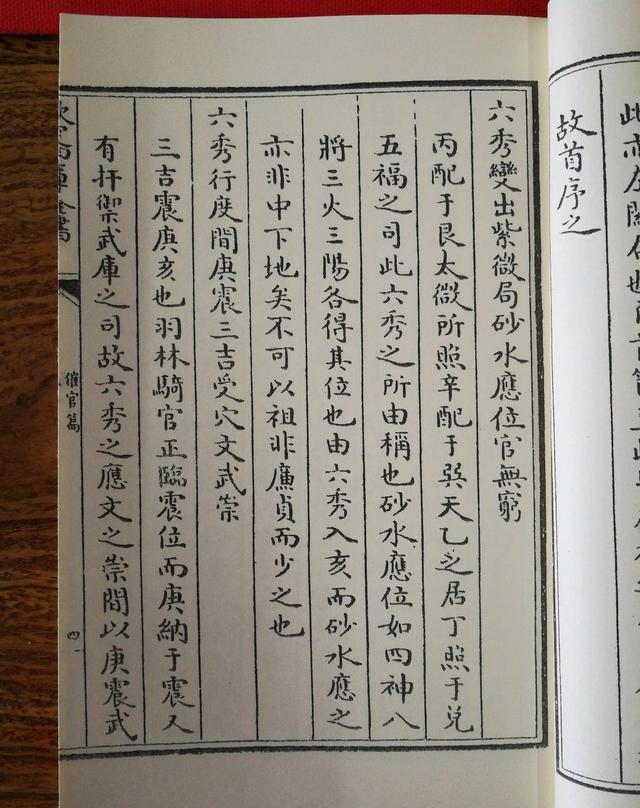 故首序之
六秀變出紫微局砂水應位官無窮
丙配于艮太微所照辛配于巽天乙之居丁照于兌
五福之司此六秀之所由稱也砂水應位如四神八
將三火三陽各得其位也由六秀入亥而砂水應之
亦非中下地矣不可以祖非廉貞而少之也
六秀行度間庚震三吉受穴文武崇
三吉震庚亥也羽林騎官正臨震位而庚納于震又
有扞禦武庫之司故六秀之應文之崇間以庚震武
催官篇
四